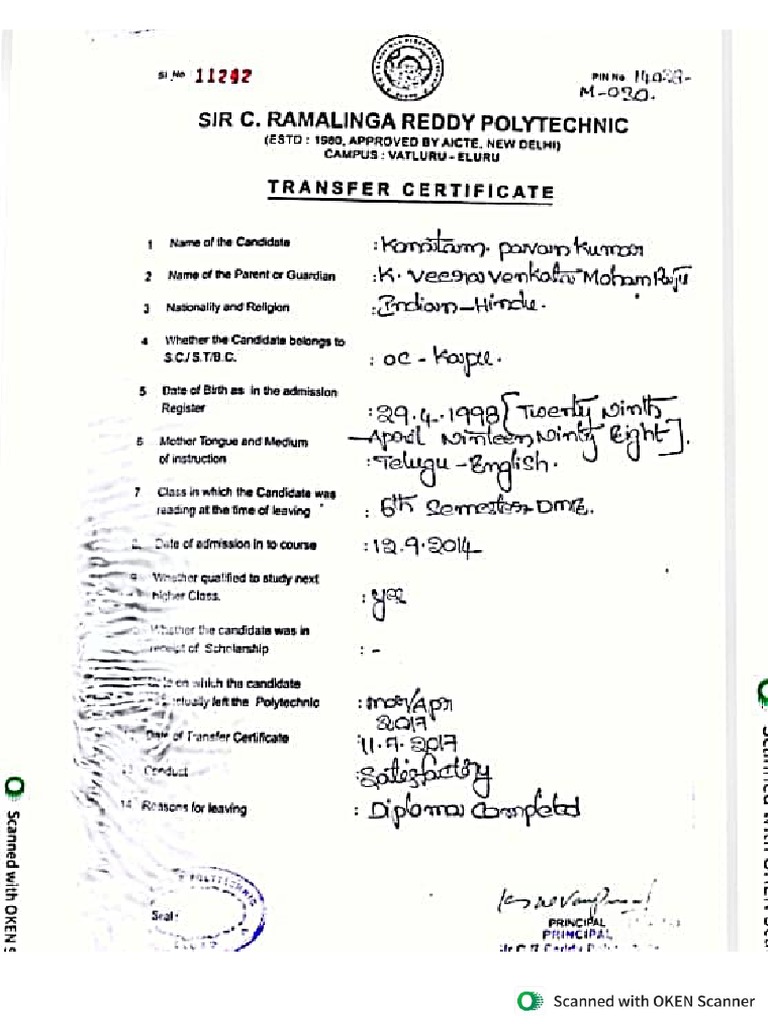 Sl.No 11292
PIN No. 14023-
M-030.
SIR C. RAMALINGA REDDY POLYTECHNIC
(ESTD : 1980, APPROVED BY AICTE, NEW DELHI)
CAMPUS : VATLURU - ELURU
TRANSFER CERTIFICATE
1 Name of the Candidate : Kanitam. pavan kumar
2 Name of the Parent or Guardian : K. Veera Venkata Mohan Raju
3 Nationality and Religion : Indian-Hindu.
4 Whether the Candidate belongs to
S.C./S.T./B.C. : OC - Kapu.
5 Date of Birth as in the admission
Register : 29.4.1998 [Twenty Ninth
April Ninteen Ninty Eight].
6 Mother Tongue and Medium
of instruction : Telugu-English.
7 Class in which the Candidate was
reading at the time of leaving : 6th Semester DME.
8 Date of admission in to course : 12.9.2014
9 Whether qualified to study next
higher Class. : yes
Whether the candidate was in
receipt of Scholarship : -
on which the candidate
actually left the Polytechnic : mar/Apr
2017
Date of Transfer Certificate : 11.7.2017
13 Conduct : Satisfactory
14 Reasons for leaving : Diploma Completed
POLYTECHNIC
Seal :
PRINCIPAL
PRINCIPAL
Scanned with OKEN S
Scanned with OKEN Scanner